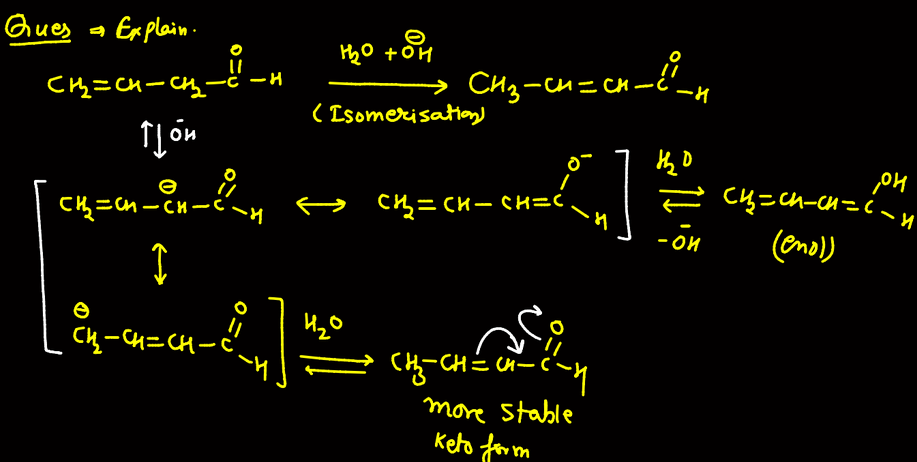 Ques ⇒ Explain.
CH₂=CH–CH₂–C(=O)–H
H₂O + ⊖OH
(Isomerisation)
CH₃–CH=CH–C(=O)–H
⇅ ŌH
[CH₂=CH–CH(⊖)–C(=O)–H ↔ CH₂=CH–CH=C(O⁻)–H]
H₂O
⇌
–ŌH
CH₂=CH–CH=C(OH)–H
(enol)
↕
⊖CH₂–CH=CH–C(=O)–H]
H₂O
⇌
CH₃–CH=CH–C(=O)–H
more stable
keto form